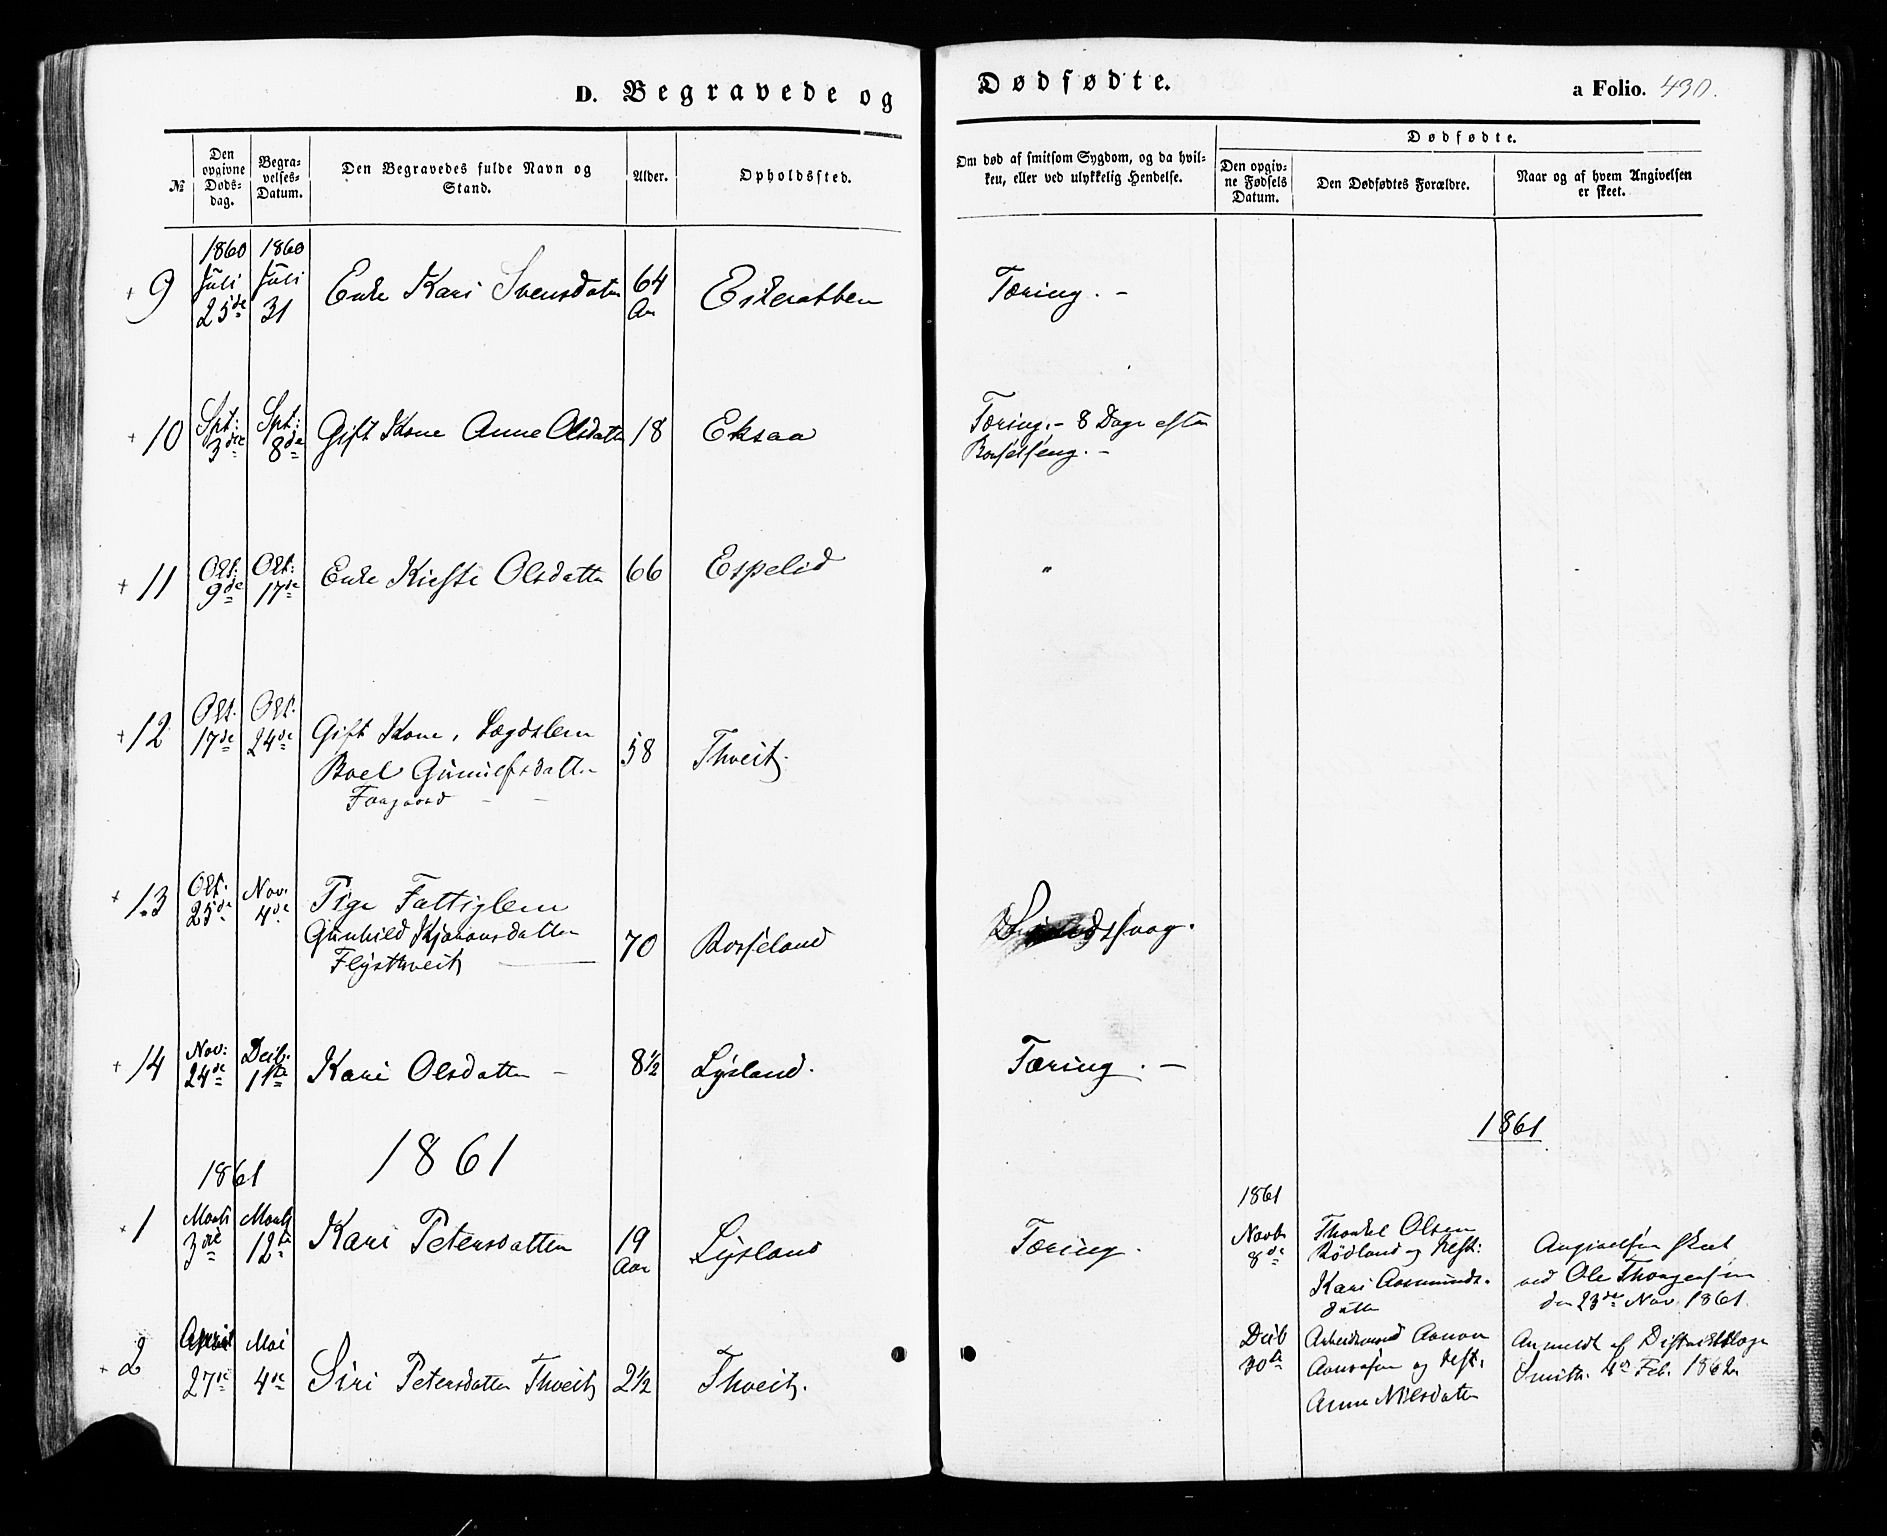 D. Begravede og Dødfødte. a Folio. 430.
№
Den opgivne Døds-dag.
Begra-velses-Datum.
Den Begravedes fulde Navn og Stand.
Alder.
Opholdssted.
Om død af smitsom Sygdom, og da hvil-
ken, eller ved ulykkelig Hendelse.
Dødfødte.
Den opgiv-ne Fødsels Datum.
Den Dødfødtes Forældre.
Naar og af hvem Angivelsen
er skeet.
+ 9 1860 Juli 25de 1860 Juli 31 Enke Kari Svensdatter 64 Aar Tæring. -
+ 10 Spt: 3die Spt: 8de Gift Kone Anne Olsdatter 18 Eksaa Tæring. - 8 Dage efter
Barselseng. -
+ 11 Okt. 9de Okt: 17de Enke Kirsti Olsdatter 66 Espelid "
+ 12 Okt. 17de Okt. 24de Gift Kone, Lægdslem
Boel Gunulfsdatter 58 Thveit.
+ 13 Okt. 25de Nov. 4de Pige Fattiglem
Gunhild
Flystthveit 70 Rosseland
+ 14 Nov: 24de Decb. 1ste Kari Olsdatter - 8½ Lysland. Tæring. -
1861
1861
1861
+ 1 Marts 3die Marts 12te Kari Petersdatter 19 Aar Lysland Tæring.
+ 2 April 27de Mai 4de Siri Petersdatter Thveit 2½ Thveit.
1861
Novb 8de Olsen
Rødland og Hust:
Kari Aasmunds-
datter
Angivelsen skeet
ved Ole
den 23de Nov. 1861.
Decb 30te Arbeidsmand Aanon
Aanonsen og Hust.
Anne Nilsdatter
Anmeldt af Distriktslæge
Smith. 4de Feb. 1862